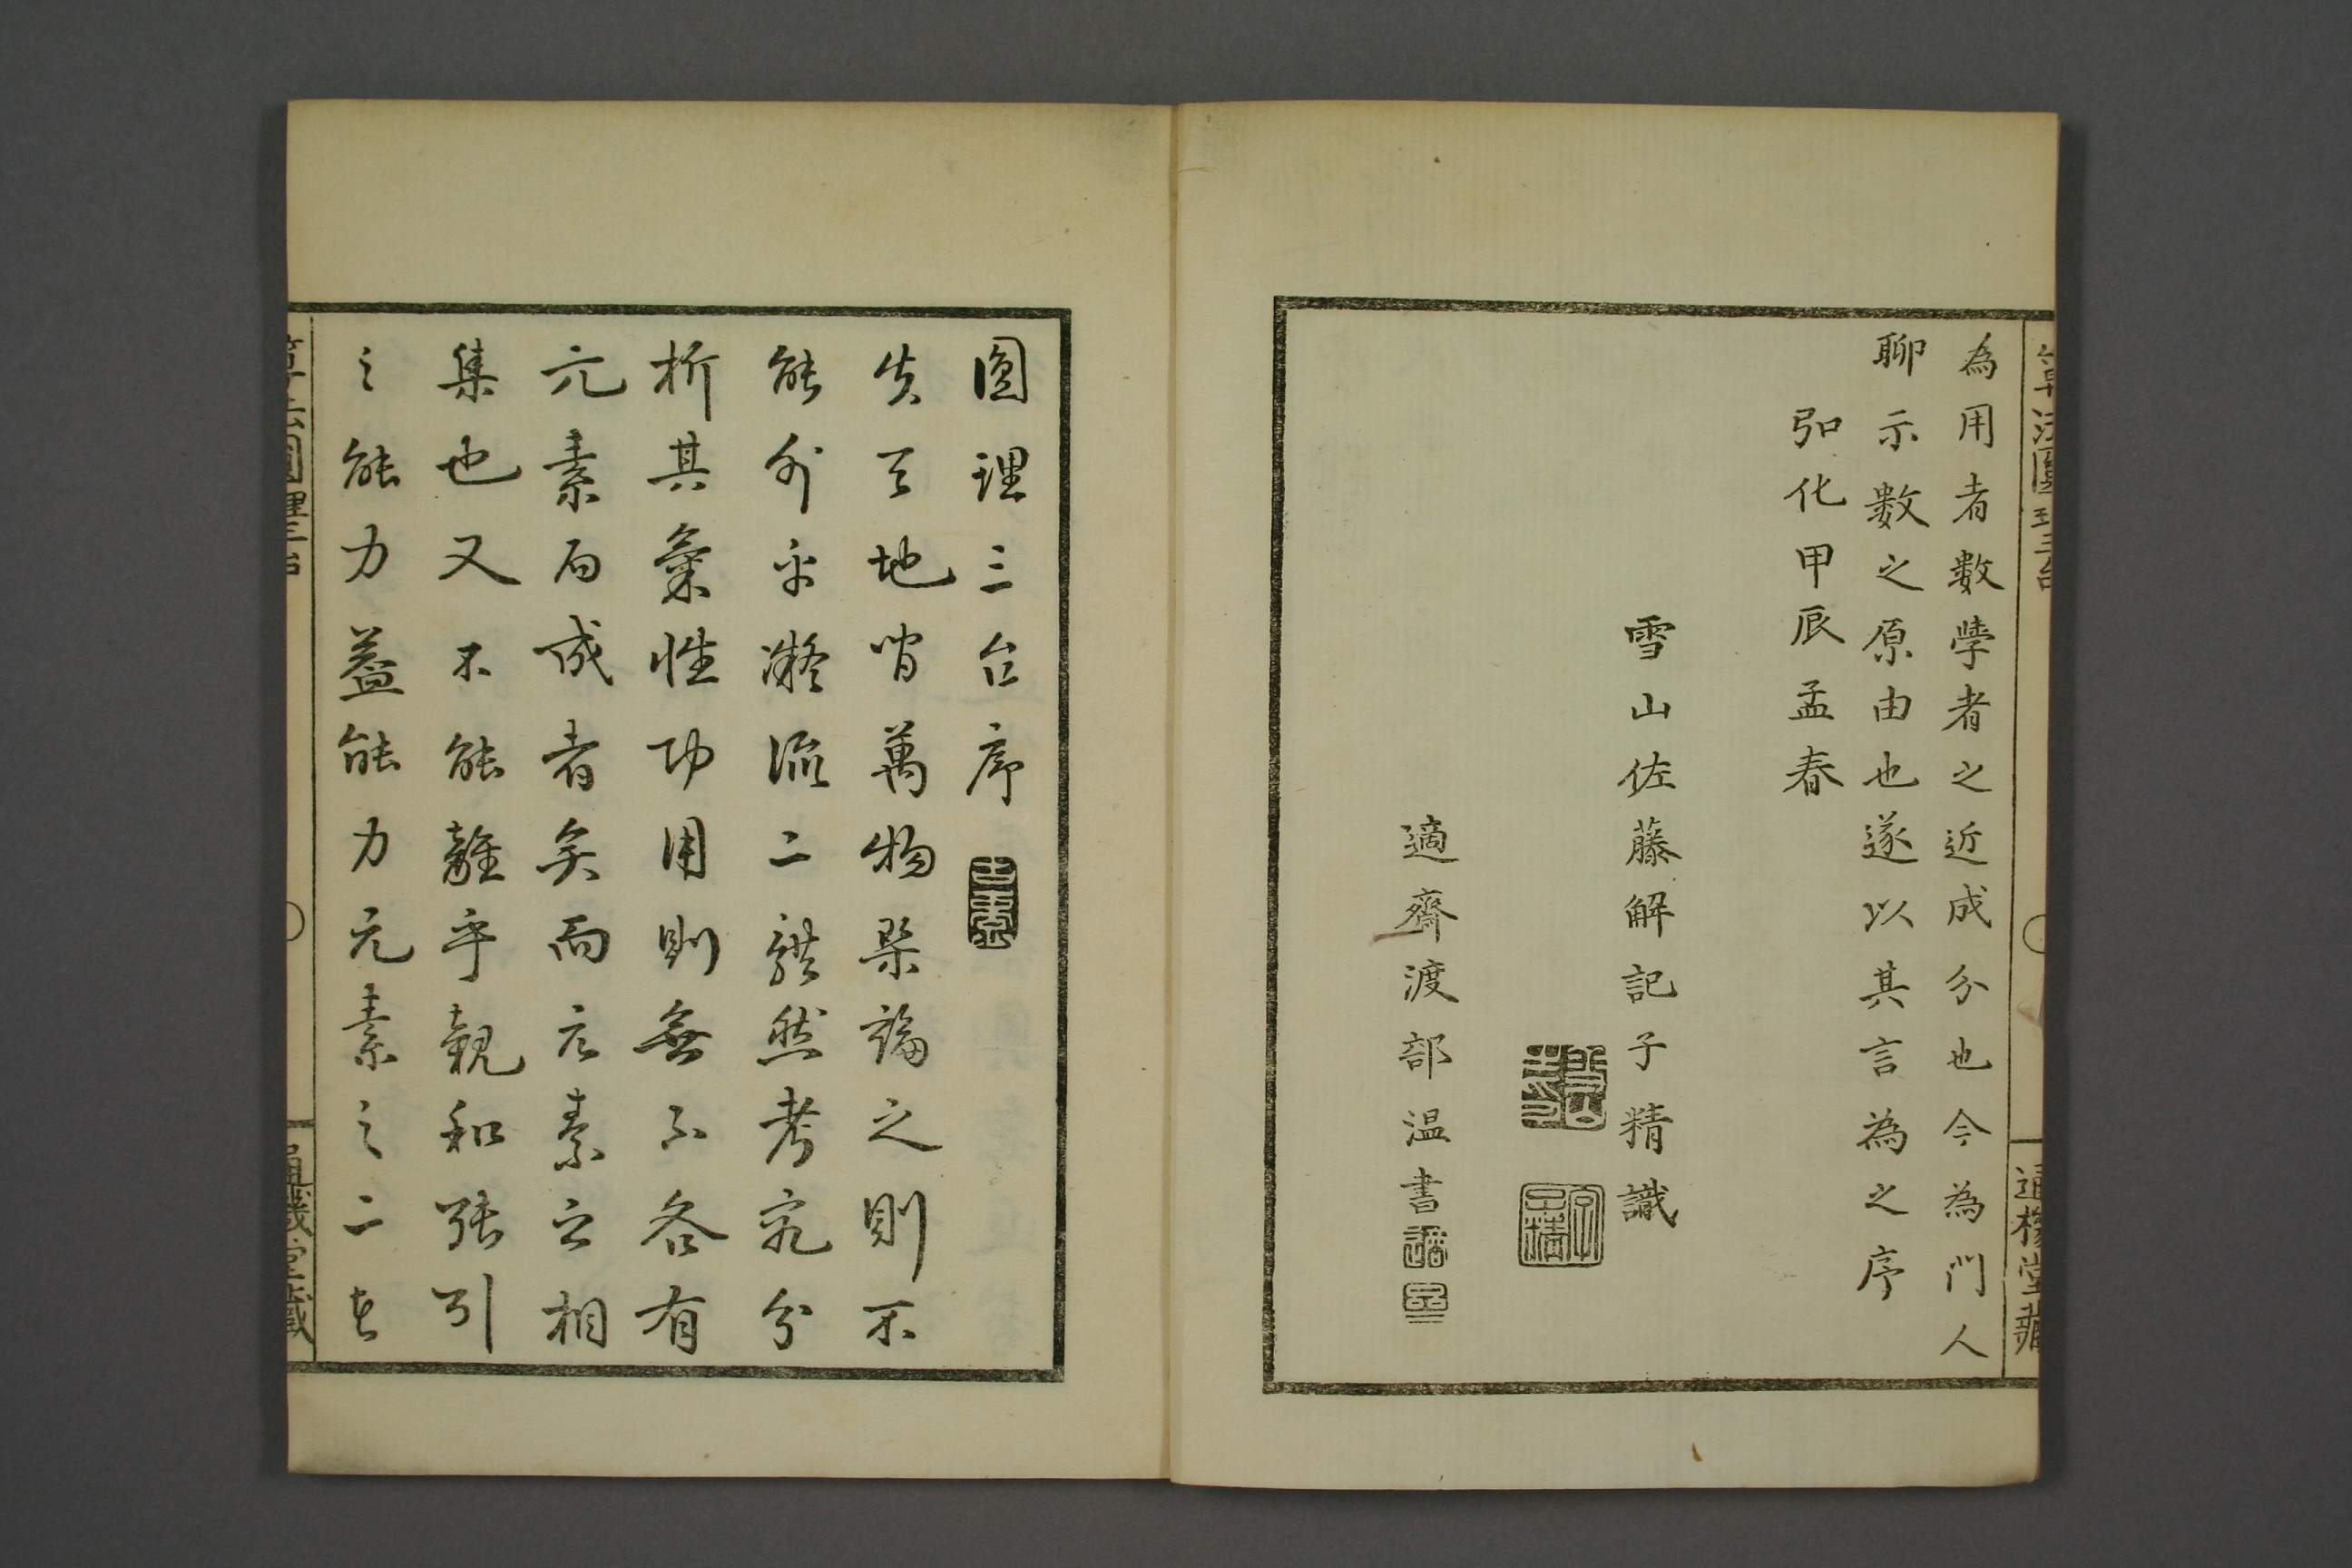 為用者数學者之近成分也今為門人
聊示数之原由也遂以其言為之序
弘化甲辰孟春
雪山佐藤解記子精識
適齋渡部温書
圓理三台序
失天地間萬物槩論之則不
能外乎凝流二體然考究分
析其氣性功用則無不各有
元素而成者矣而元素之相
集也又不能離乎親和張引
之能力蓋能力元素之二者
算法圓理三台
通機堂藏